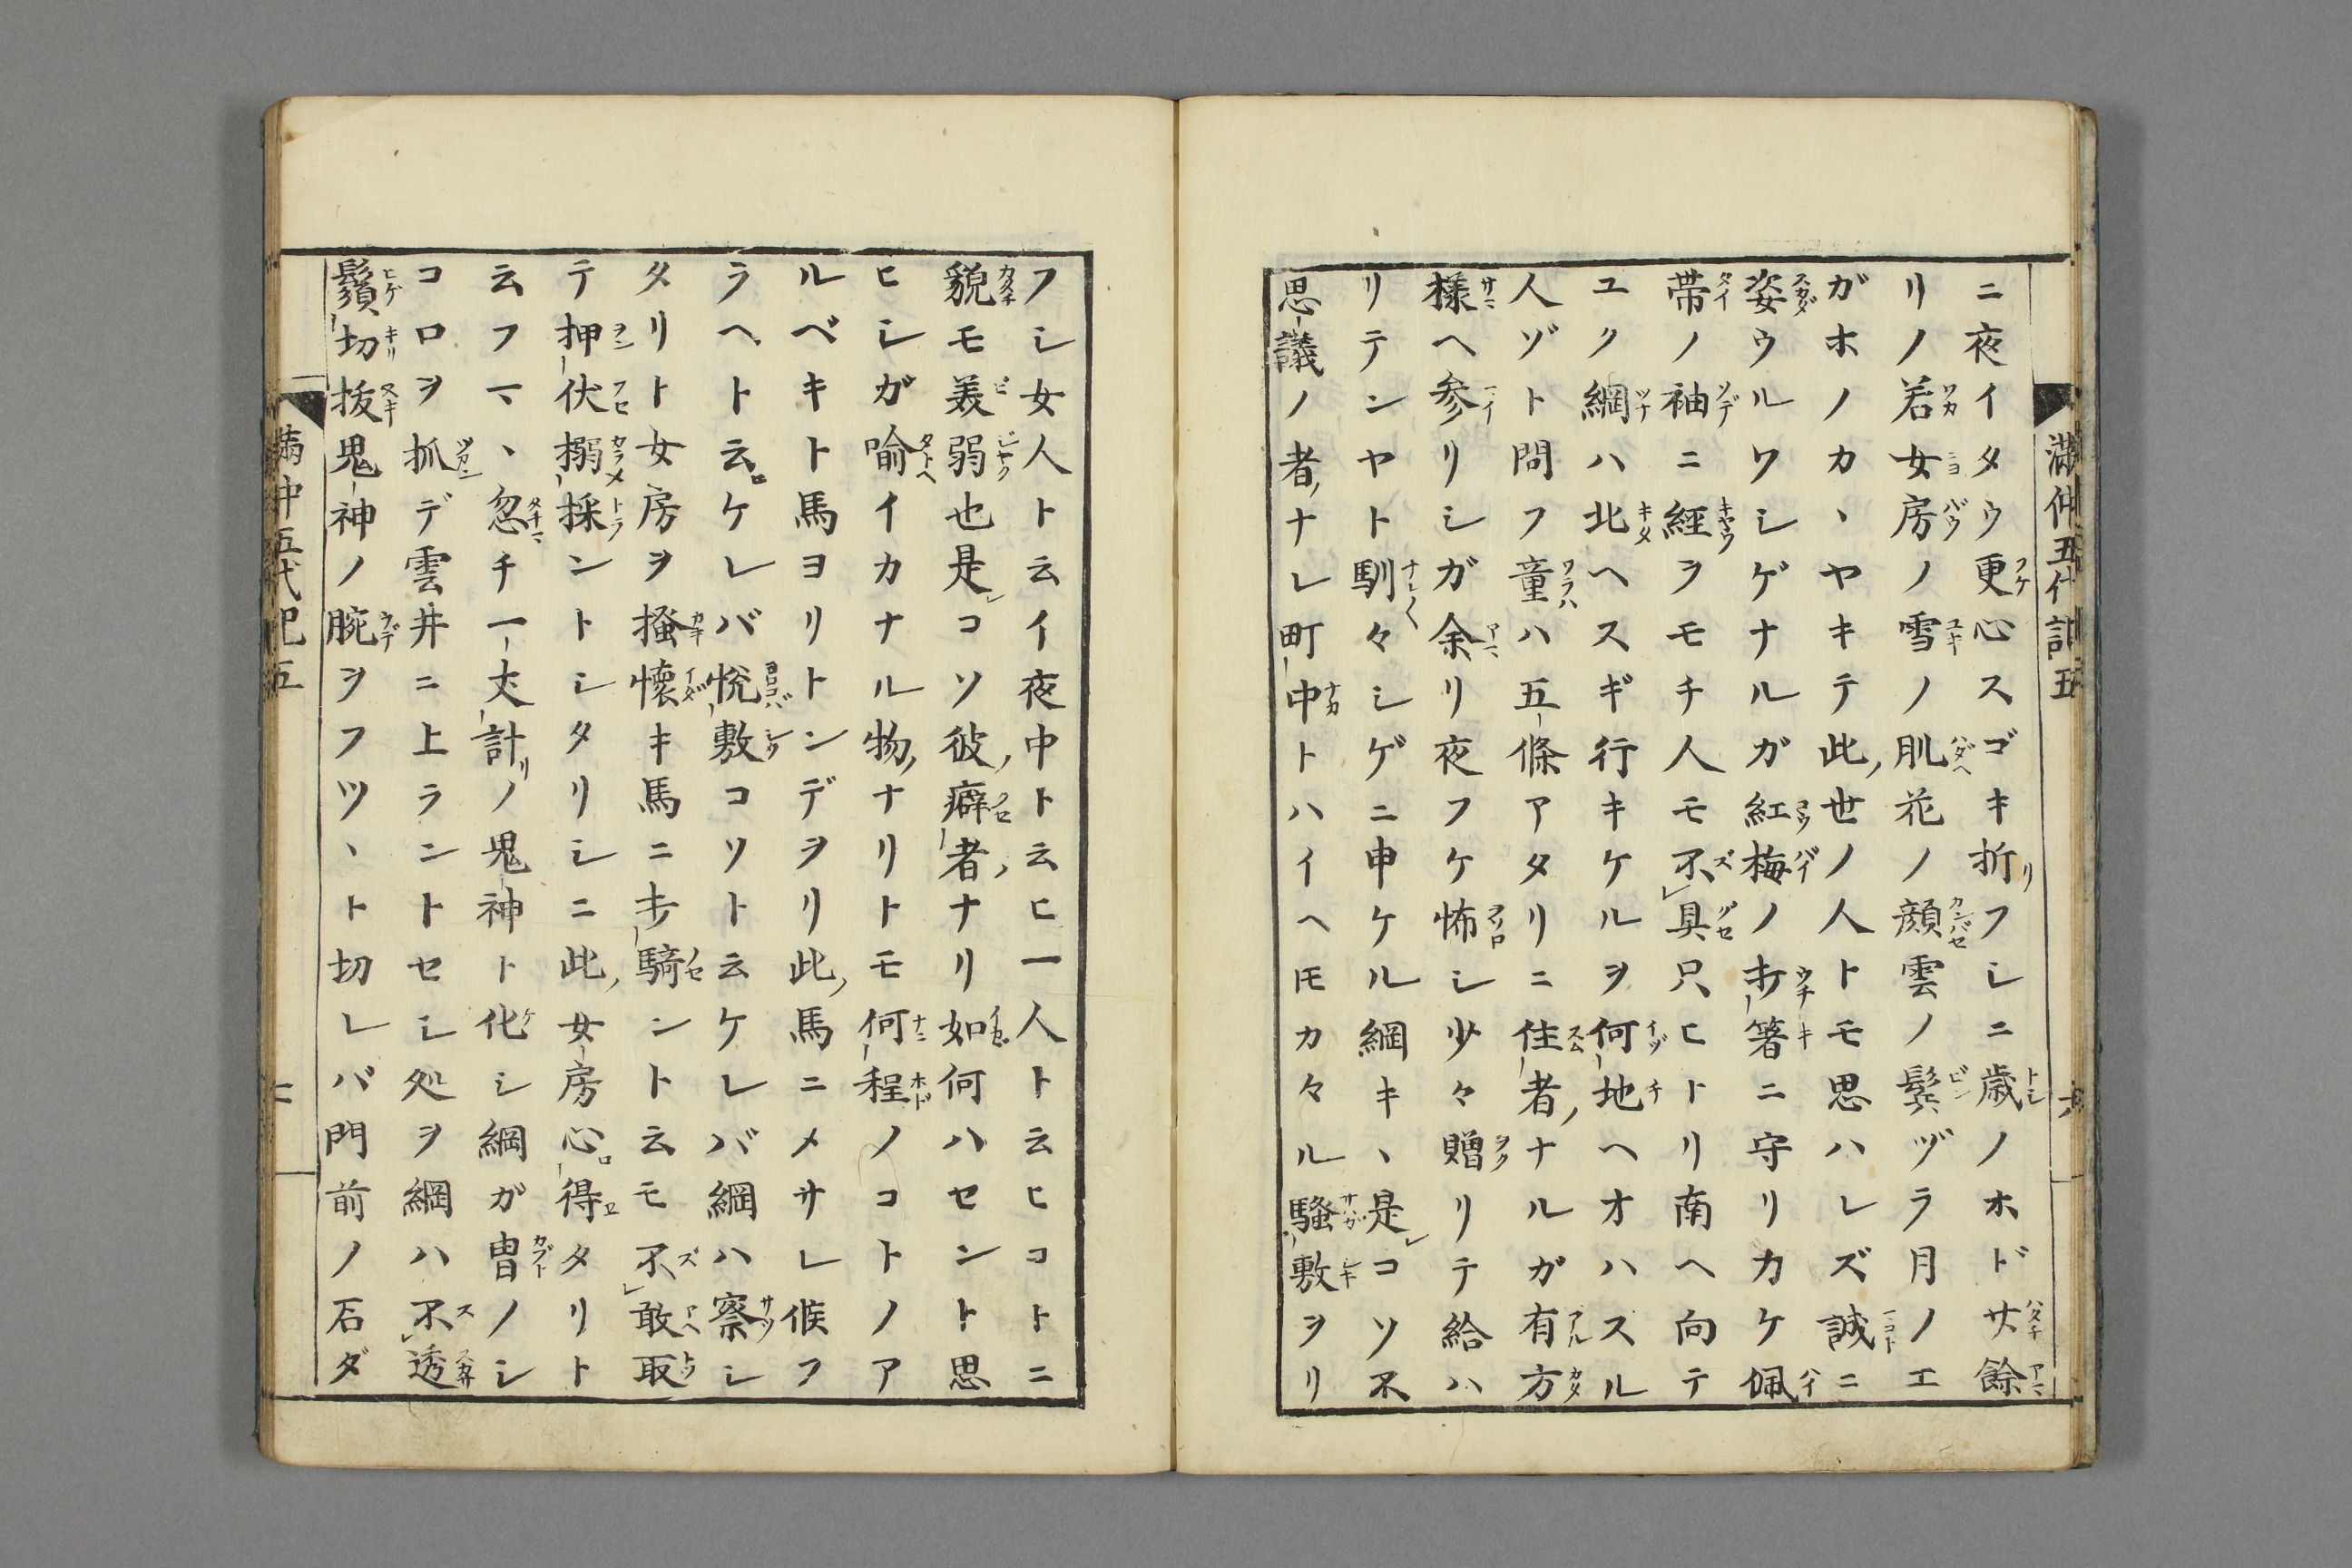 満仲五代記五
六
ニ夜イタウ更心スゴキ折リフシニ歳ノホド廿餘
リノ若女房ノ雪ノ肌花ノ顔雲ノ鬂ヅラ月ノエ
ガホノカヽヤキテ此ノ世ノ人トモ思ハレズ誠ニ
姿ウルワシゲナルガ紅梅ノ打着ニ守リカケ佩
帯ノ袖ニ經ヲモチ人モ不具只ヒトリ南ヘ向テ
ユク綱ハ北ヘスギ行キケルヲ何地ヘオハスル
人ゾト問フ童ハ五條アタリニ住者ノナルガ有方
様ヘ参リシガ余リ夜フケ怖シ少々贈リテ給ハ
リテンヤト馴々シゲニ申ケル綱キヽ是レコソ不
思議ノ者ノナレ町中トハイヘ𪜈カ々ル騒敷ヲリ
フシ女人ト云イ夜中ト云ヒ一人ト云ヒコトニ
貌モ美弱也是レコソ彼ノ癖者ノナリ如何ハセント思
ヒシガ喻イカナル物ノナリトモ何程ノコトノア
ルベキト馬ヨリトンデヲリ此ノ馬ニメサレ候フ
ラヘト云ロケレバ悦敷コソト云ケレバ綱ハ察シ
タリト女房ヲ掻懐キ馬ニ打騎ント云モ不敢取
テ押伏搦採ントシタリシニ此ノ女房心ロ得タリト
云フマヽ忽チ一丈計リノ鬼神ト化シ綱ガ冑ノシ
コロヲ抓デ雲井ニ上ラントセシ処ヲ綱ハ不透
鬚切抜鬼神ノ腕ヲフツヽト切レバ門前ノ石ダ
満仲五代記五
七